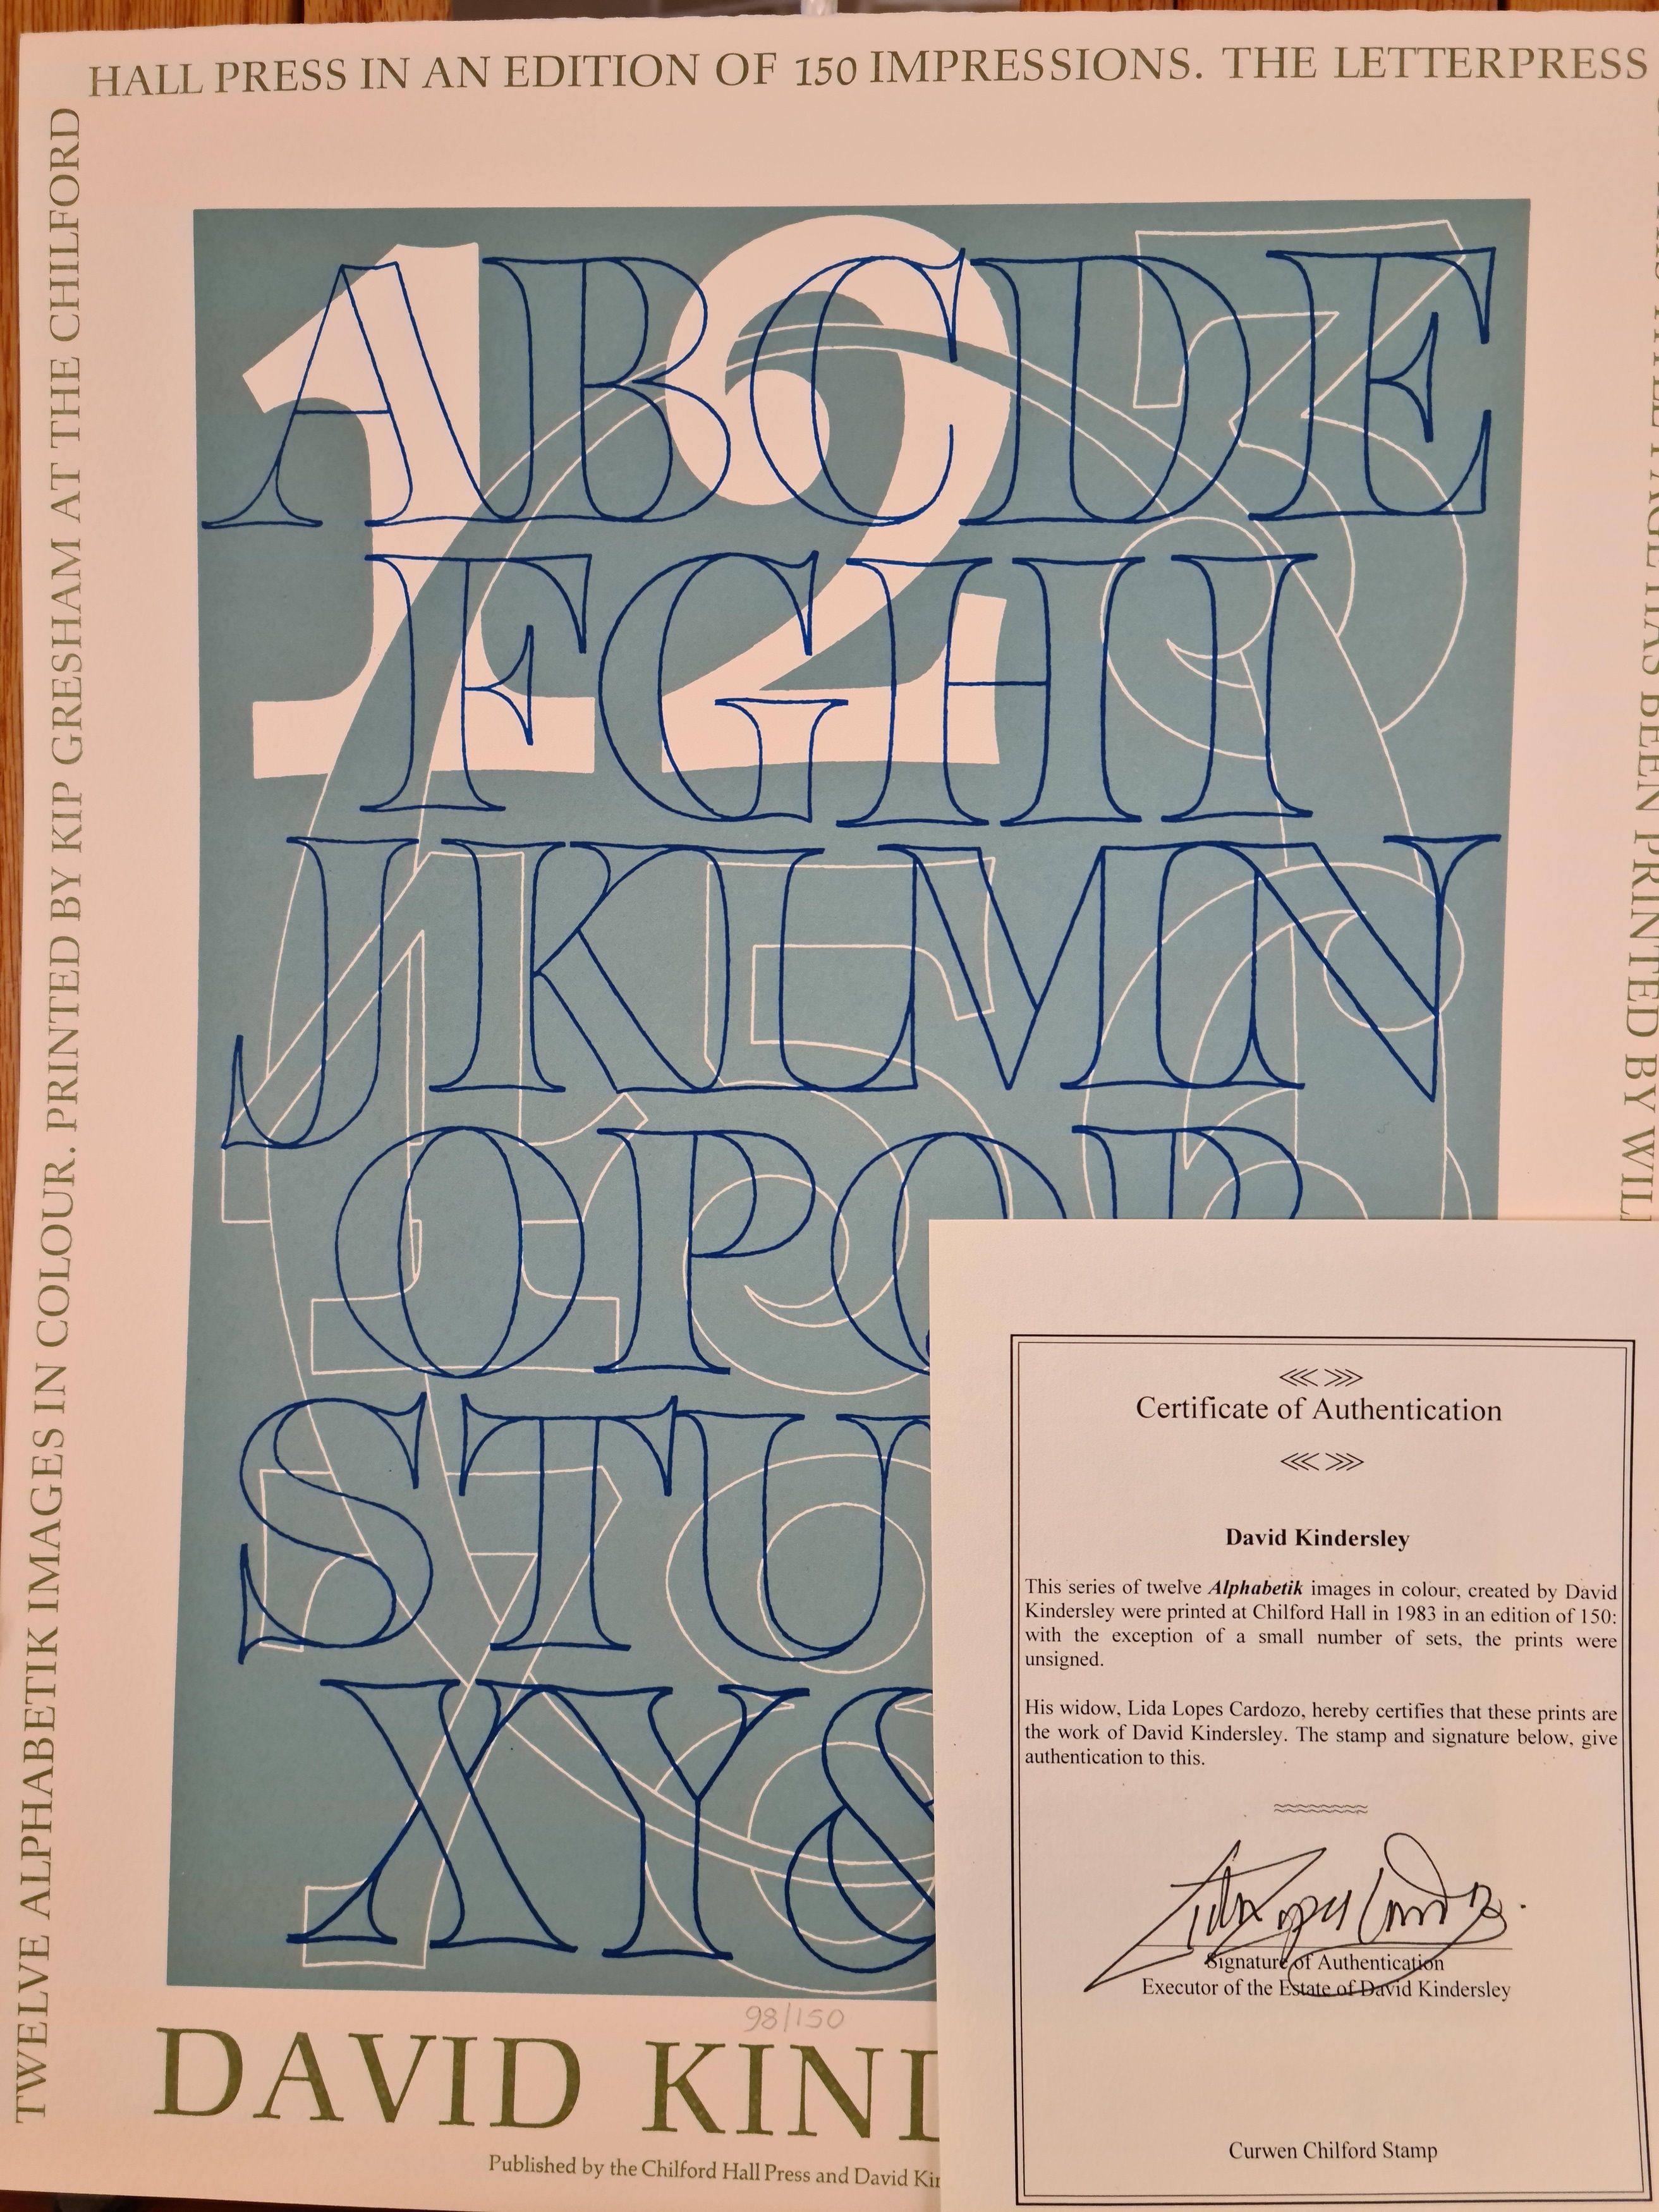 TWELVE ALPHABETIK IMAGES IN COLOUR. PRINTED BY KIP GRESHAM AT THE CHILFORD
HALL PRESS IN AN EDITION OF 150 IMPRESSIONS. THE LETTERPRESS
TITLE PAGE HAS BEEN PRINTED BY WILL
1 2 3
ABCDE
FGHI
4 5 6
JKLMN
OPQR
7 8
STU
XY&
98/150
DAVID KIND
Published by the Chilford Hall Press and David Kin
Certificate of Authentication
David Kindersley
This series of twelve Alphabetik images in colour, created by David
Kindersley were printed at Chilford Hall in 1983 in an edition of 150:
with the exception of a small number of sets, the prints were
unsigned.
His widow, Lida Lopes Cardozo, hereby certifies that these prints are
the work of David Kindersley. The stamp and signature below, give
authentication to this.
Lida Lopes Cardozo
Signature of Authentication
Executor of the Estate of David Kindersley
Curwen Chilford Stamp